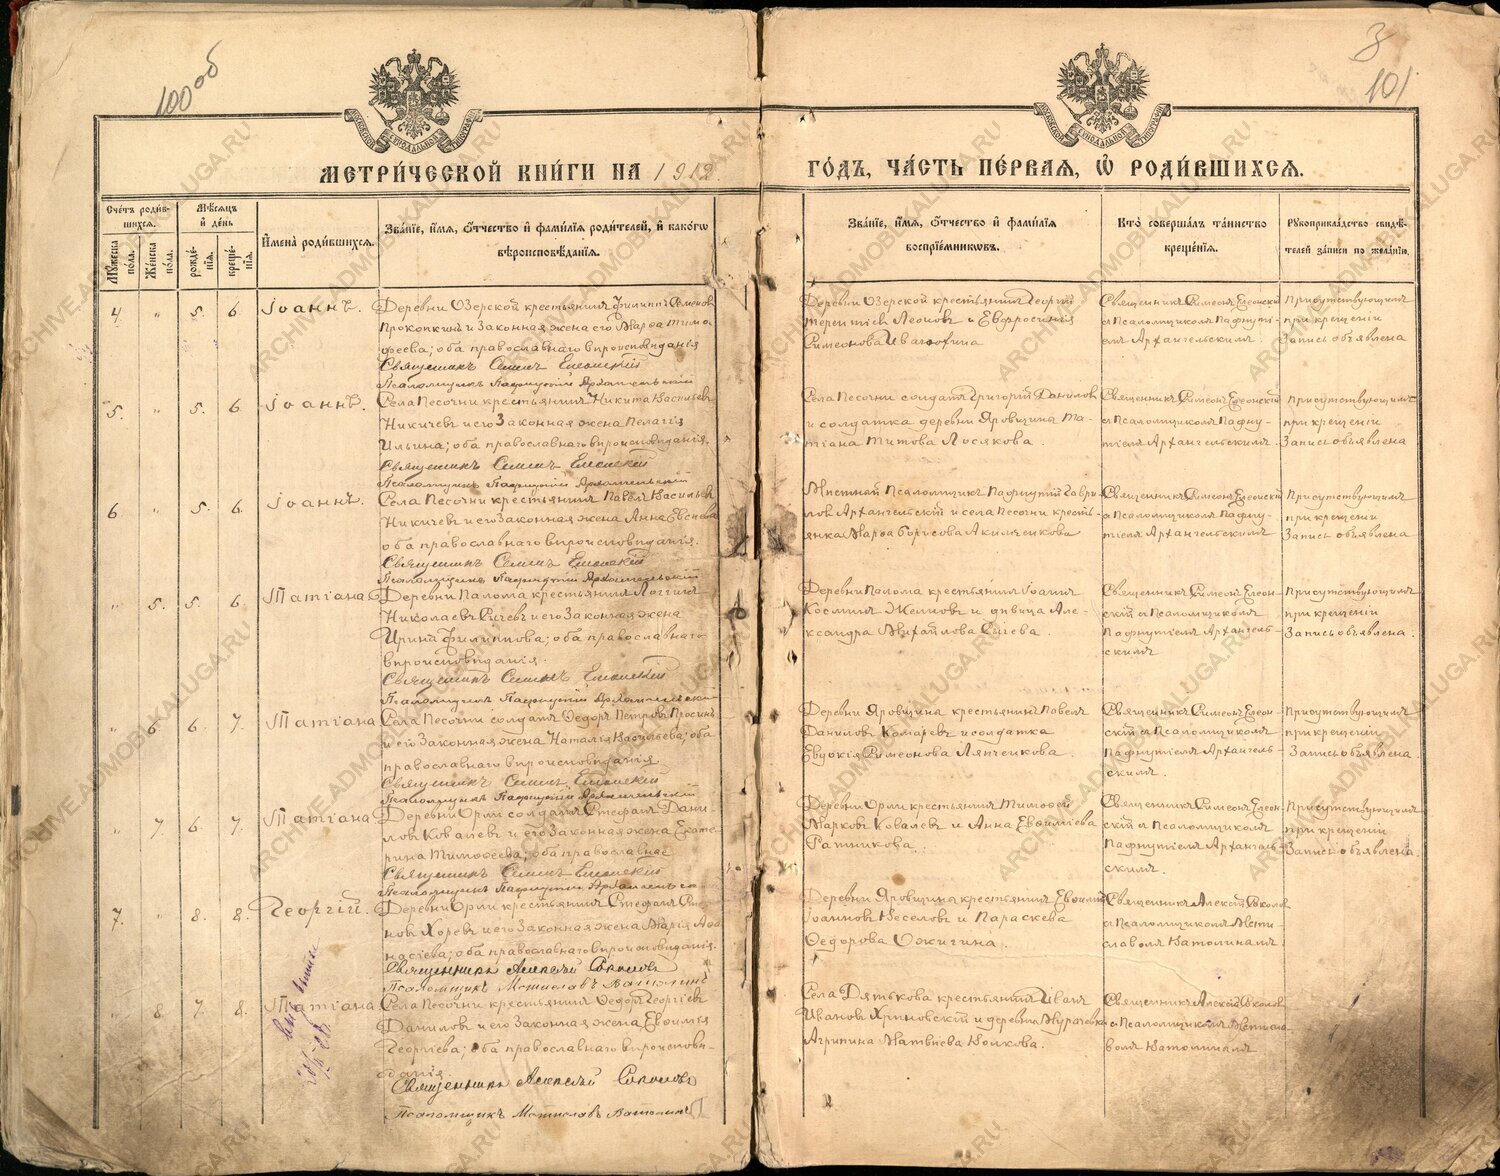 100 об
3
101
МОСКОВСКОЙ СѴНОДАЛЬНОЙ ТИПОГРАФІИ
МОСКОВСКОЙ СѴНОДАЛЬНОЙ ТИПОГРАФІИ
МЕТРИ́ЧЕСКОЙ КНИ́ГИ НА 1912
ГО́ДЪ, ЧА́СТЬ ПЕ́РВАЯ, Ѽ РОДИ́ВШИХСЯ.
Сче́тъ роди́в-
шихся.
Му́жеска по́ла.
Же́нска по́ла.
Мѣ́сяцъ и҆ де́нь
рожде́-нїя.
креще́-нїя.
И҆мена̀ роди́вшихся.
Зва́нїе, и҆́мя, ѻ҆́тчество и҆ фами́лїя роди́телей, и҆ како́гѡ
вѣроисповѣ́данїя.
Зва́нїе, и҆́мя, ѻ҆́тчество и҆ фами́лїя
воспрїе́мникѡвъ.
Кто̀ соверша́лъ та́инство
креще́нїя.
Рꙋкоприкла́дство свидѣ́-
телей за́писи по жела́нїю.
4. " 5. 6. Іоаннъ.
Деревни Озерской крестьянинъ Филиппъ
Прокопкинъ и законная жена его Марѳа Тимо-
ѳеева; оба православнаго вѣроисповѣданія
Священникъ
Псаломщикъ Пафнутій Архангельскій
Деревни Озерской крестьянинъ Георгій
Терентіевъ Леоновъ и Евфросинія
Симеонова
Священникъ Симеонъ
и Псаломщикомъ Пафнуті-
емъ Архангельскимъ.
Присутствующимъ
при крещеніи
Запись объявлена
5. " 5. 6. Іоаннъ.
Села Песочни крестьянинъ Никита Васильевъ
Никичевъ и его законная жена Пелагія
Ильина; оба православнаго вѣроисповѣданія.
Священникъ
Псаломщикъ Пафнутій Архангельскій
Села Песочни солдатъ Григорій Даниловъ
и солдатка деревни Яровщина Та-
тіана Титова Лосякова.
Священникъ Симеонъ
и Псаломщикомъ Пафну-
тіемъ Архангельскимъ.
Присутствующимъ
при крещеніи
Запись объявлена
6. " 5. 6. Іоаннъ.
Села Песочни крестьянинъ Павелъ Васильевъ
Никичевъ и его законная жена Анна Евсеева
оба православнаго вѣроисповѣданія.
Священникъ
Псаломщикъ Пафнутій Архангельскій
Мѣстный Псаломщикъ Пафнутій Гаври-
ловъ Архангельскій и села Песочни кресть-
янка Марѳа Борисова Акимченкова
Священникъ Симеонъ
и Псаломщикомъ Пафну-
тіемъ Архангельскимъ
Присутствующимъ
при крещеніи
Запись объявлена
" 5. 5. 6 Татіана
Деревни Палома крестьянинъ Логгинъ
Николаевъ и его законная жена
Ирина Филиппова; оба православнаго
вѣроисповѣданія.
Священникъ
Псаломщикъ Пафнутій Архангельскій
Деревни Палома крестьянинъ Іоаннъ
Косминъ и дѣвица Але-
ксандра Михайлова Сычева.
Священникъ Симеонъ
и Псаломщикомъ
Пафнутіемъ Архангель-
скимъ
Присутствующимъ
при крещеніи
Запись объявлена.
" 6 6. 7. Татіана
Села Песочни солдатъ Ѳедоръ Петровъ
и его законная жена Наталія Васильева; оба
православнаго вѣроисповѣданія
Священникъ
Псаломщикъ Пафнутій Архангельскій
Деревни Яровщина крестьянинъ Павелъ
Даниловъ Комаревъ и солдатка
Евдокія Симеонова Ляпченкова.
Священникъ Симеонъ
и Псаломщикомъ
Пафнутіемъ Архангель-
скимъ.
Присутствующимъ
при крещеніи
Запись объявлена
" 7. 6. 7. Татіана
Деревни Орли солдатъ Стефанъ Дани-
ловъ Ковалевъ и его законная жена Екате-
рина Тимоѳеева; оба православнаго
Священникъ
Псаломщикъ Пафнутій
Деревни Орли крестьянинъ Тимоѳей
Марковъ Ковалевъ и Анна Евфиміева
Ратникова.
Священникъ Симеонъ
и Псаломщикомъ
Пафнутіемъ Архангель-
скимъ.
Присутствующимъ
при крещеніи
Запись объявлена.
7. " 8. 8. Георгій.
Деревни Орли крестьянинъ Стефанъ
Хоревъ и его законная жена Марія Аѳа-
насіева; оба православнаго вѣроисповѣданія.
Священникъ Алексѣй Соколовъ
Псаломщикъ Мстиславъ Ватолинъ
Деревни Яровщина крестьянинъ Евфимій
Іоанновъ Веселовъ и Параскева
Ѳедорова Ожигина.
Священникъ Алексѣй Соколовъ
и Псаломщикомъ Мсти-
славомъ Ватолинымъ
" 8. 7. 8. Татіана
Села Песочни крестьянинъ Ѳедоръ Георгіевъ
Даниловъ и его законная жена Евфимія
Георгіева; оба православнаго вѣроисповѣ-
данія.
Священникъ Алексѣй Соколовъ
Псаломщикъ Мстиславъ Ватолинъ
Села Дятькова крестьянинъ Иванъ
Ивановъ Хриновскій и деревни Мурачевка
Агрипина Матвѣева Волкова.
Священникъ Алексѣй Соколовъ
и Псаломщикомъ Мстисла-
вомъ Ватолинымъ
ARCHIVE.ADMOBLKALUGA.RU